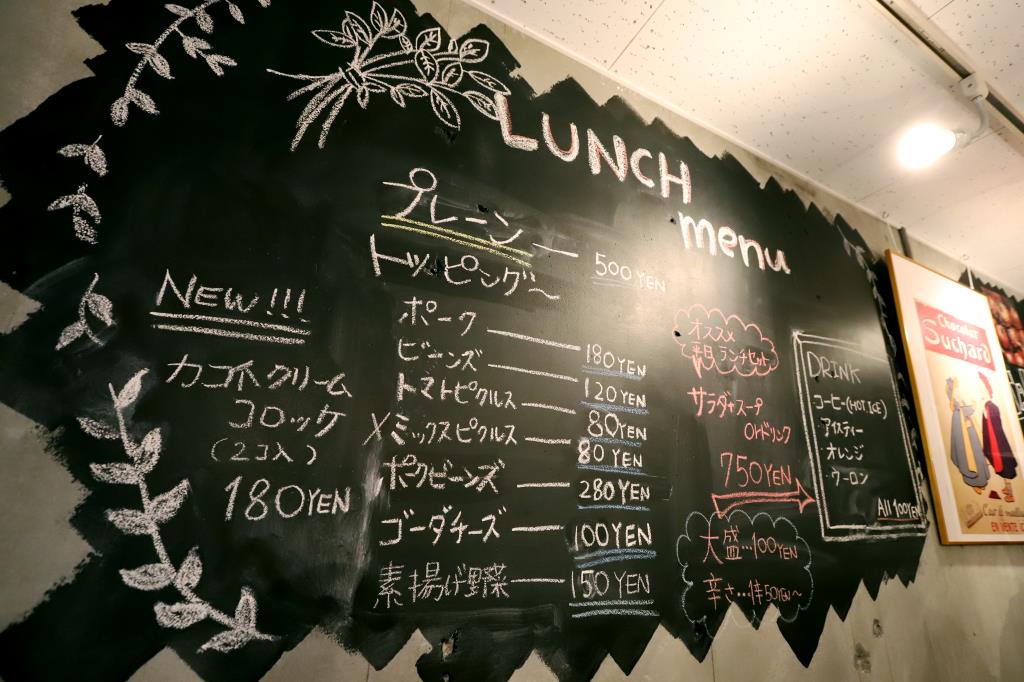 LUNCH
menu
プレーン — 500YEN
トッピング〜
ポーク — 180YEN
ビーンズ — 120YEN
トマトピクルス — 80YEN
×ミックスピクルス — 80YEN
ポークビーンズ — 280YEN
ゴーダチーズ — 100YEN
素揚げ野菜 — 150YEN
NEW!!!
クリーム
コロッケ
(2コ入)
180YEN
オススメ
ランチセット
サラダ+スープ
orドリンク
750YEN
大盛...100YEN
辛さ... 50YEN〜
DRINK
コーヒー(HOT, ICE)
アイスティー
オレンジ
ウーロン
All 100YEN
Chocolat
Suchard
EN VENTE